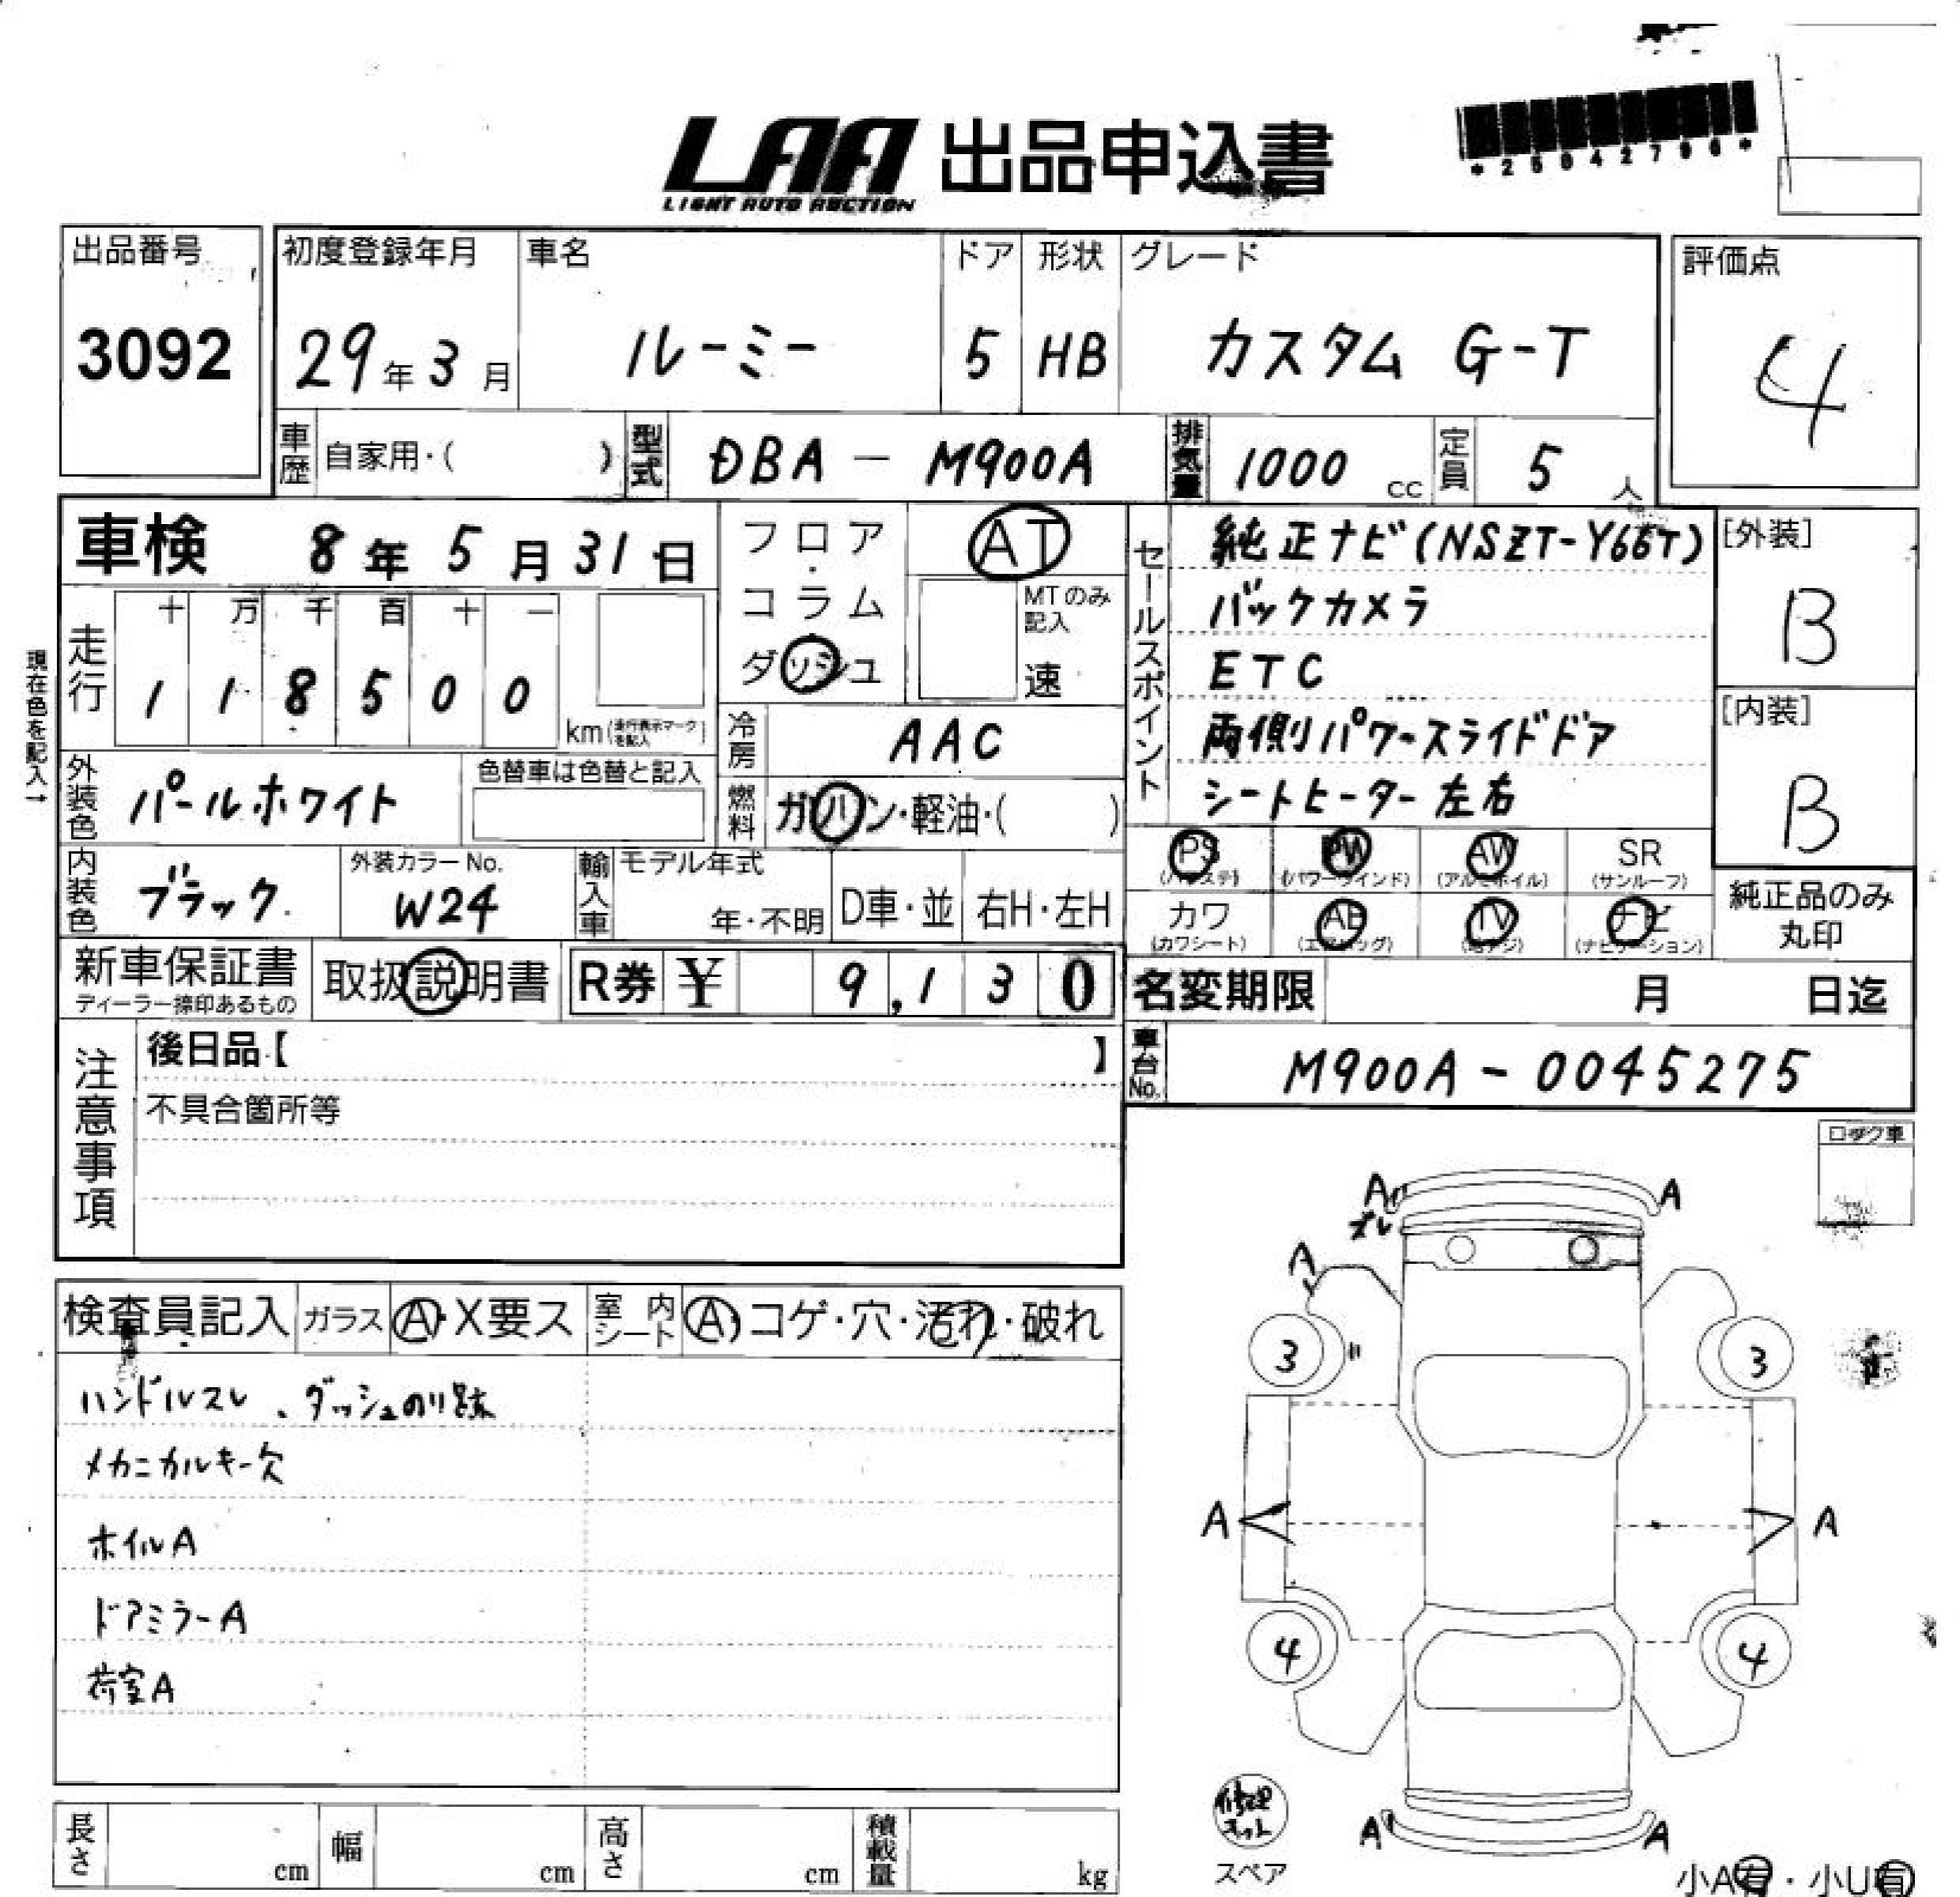 LAA 出品申込書
LIGHT AUTO AUCTION
出品番号
3092
初度登録年月
29年3月
車名
ルーミー
ドア
5
形状
HB
グレード
カスタム G-T
評価点
4
車歴 自家用・( )
型式 DBA - M900A
排気量 1000 cc
定員 5 人
車検 8年5月31日
走行
十 万 千 百 十 一
1 1 8 5 0 0
km (走行表示マークを記入)
現在色を記入→
フロア・コラム
ダッシュ
AT
MTのみ記入
速
冷房 AAC
燃料 ガソリン・軽油・( )
外装色 パールホワイト
色替車は色替と記入
内装色 ブラック
外装カラーNo.
W24
輸入車 モデル年式
年・不明
D車・並 右H・左H
セールスポイント
純正ナビ(NSZT-Y66T)
バックカメラ
ETC
両側パワースライドドア
シートヒーター左右
[外装]
B
[内装]
B
PS PW AW SR
(パワステ) (パワーウインド) (アルミホイル) (サンルーフ)
カワ AB TV ナビ
(カワシート) (エアバッグ) (地デジ) (ナビゲーション)
純正品のみ
丸印
新車保証書
ディーラー捺印あるもの
取扱説明書
R券 ¥ 9,130
名変期限 月 日迄
車台No. M900A-0045275
注意事項
後日品【 】
不具合箇所等
検査員記入 ガラス A・X要ス 室内シート A・コゲ・穴・汚れ・破れ
ハンドルスレ、ダッシュのり跡
メカニカルキー欠
ホイルA
ドアミラーA
荷室A
長さ cm 幅 cm 高さ cm 積載量 kg
ロック車
A A
ズレ
A
3 3
A A
4 4
修理キット
スペア
A A
小A有・小U有